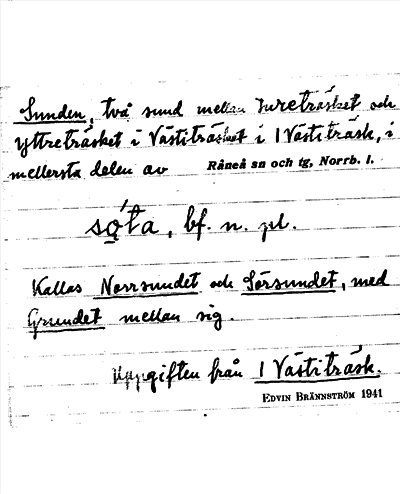 Sunden, två sund mellan Inreträsket och
Yttreträsket i Västiträsket i 1 Västiträsk, i
mellersta delen av Råneå sn och tg, Norrb. l.
so̱´ta, bf. n. pl.
Kallas Norrsundet och Sörsundet, med
Grundet mellan sig.
Uppgiften från 1 Västiträsk.
EDVIN BRÄNNSTRÖM 1941